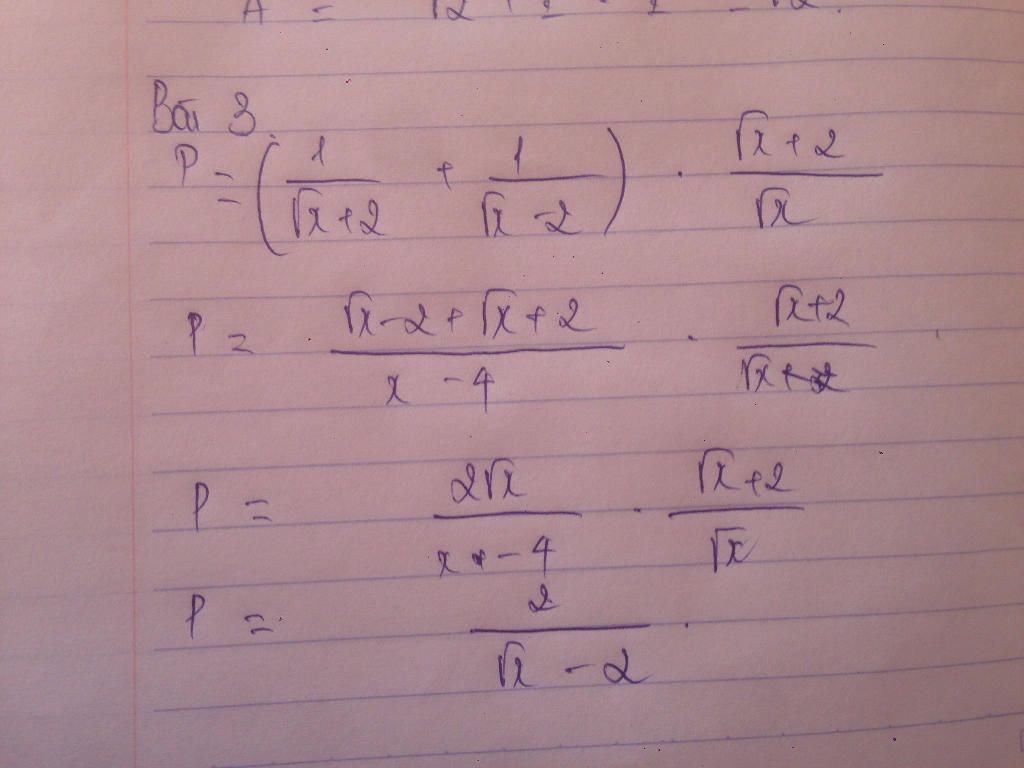 Bài 3.
P = (1/(√x+2) + 1/(√x-2)) · (√x+2)/√x
P = (√x-2+√x+2)/(x-4) · (√x+2)/√x
P = 2√x/(x-4) · (√x+2)/√x
P = 2/(√x-2).